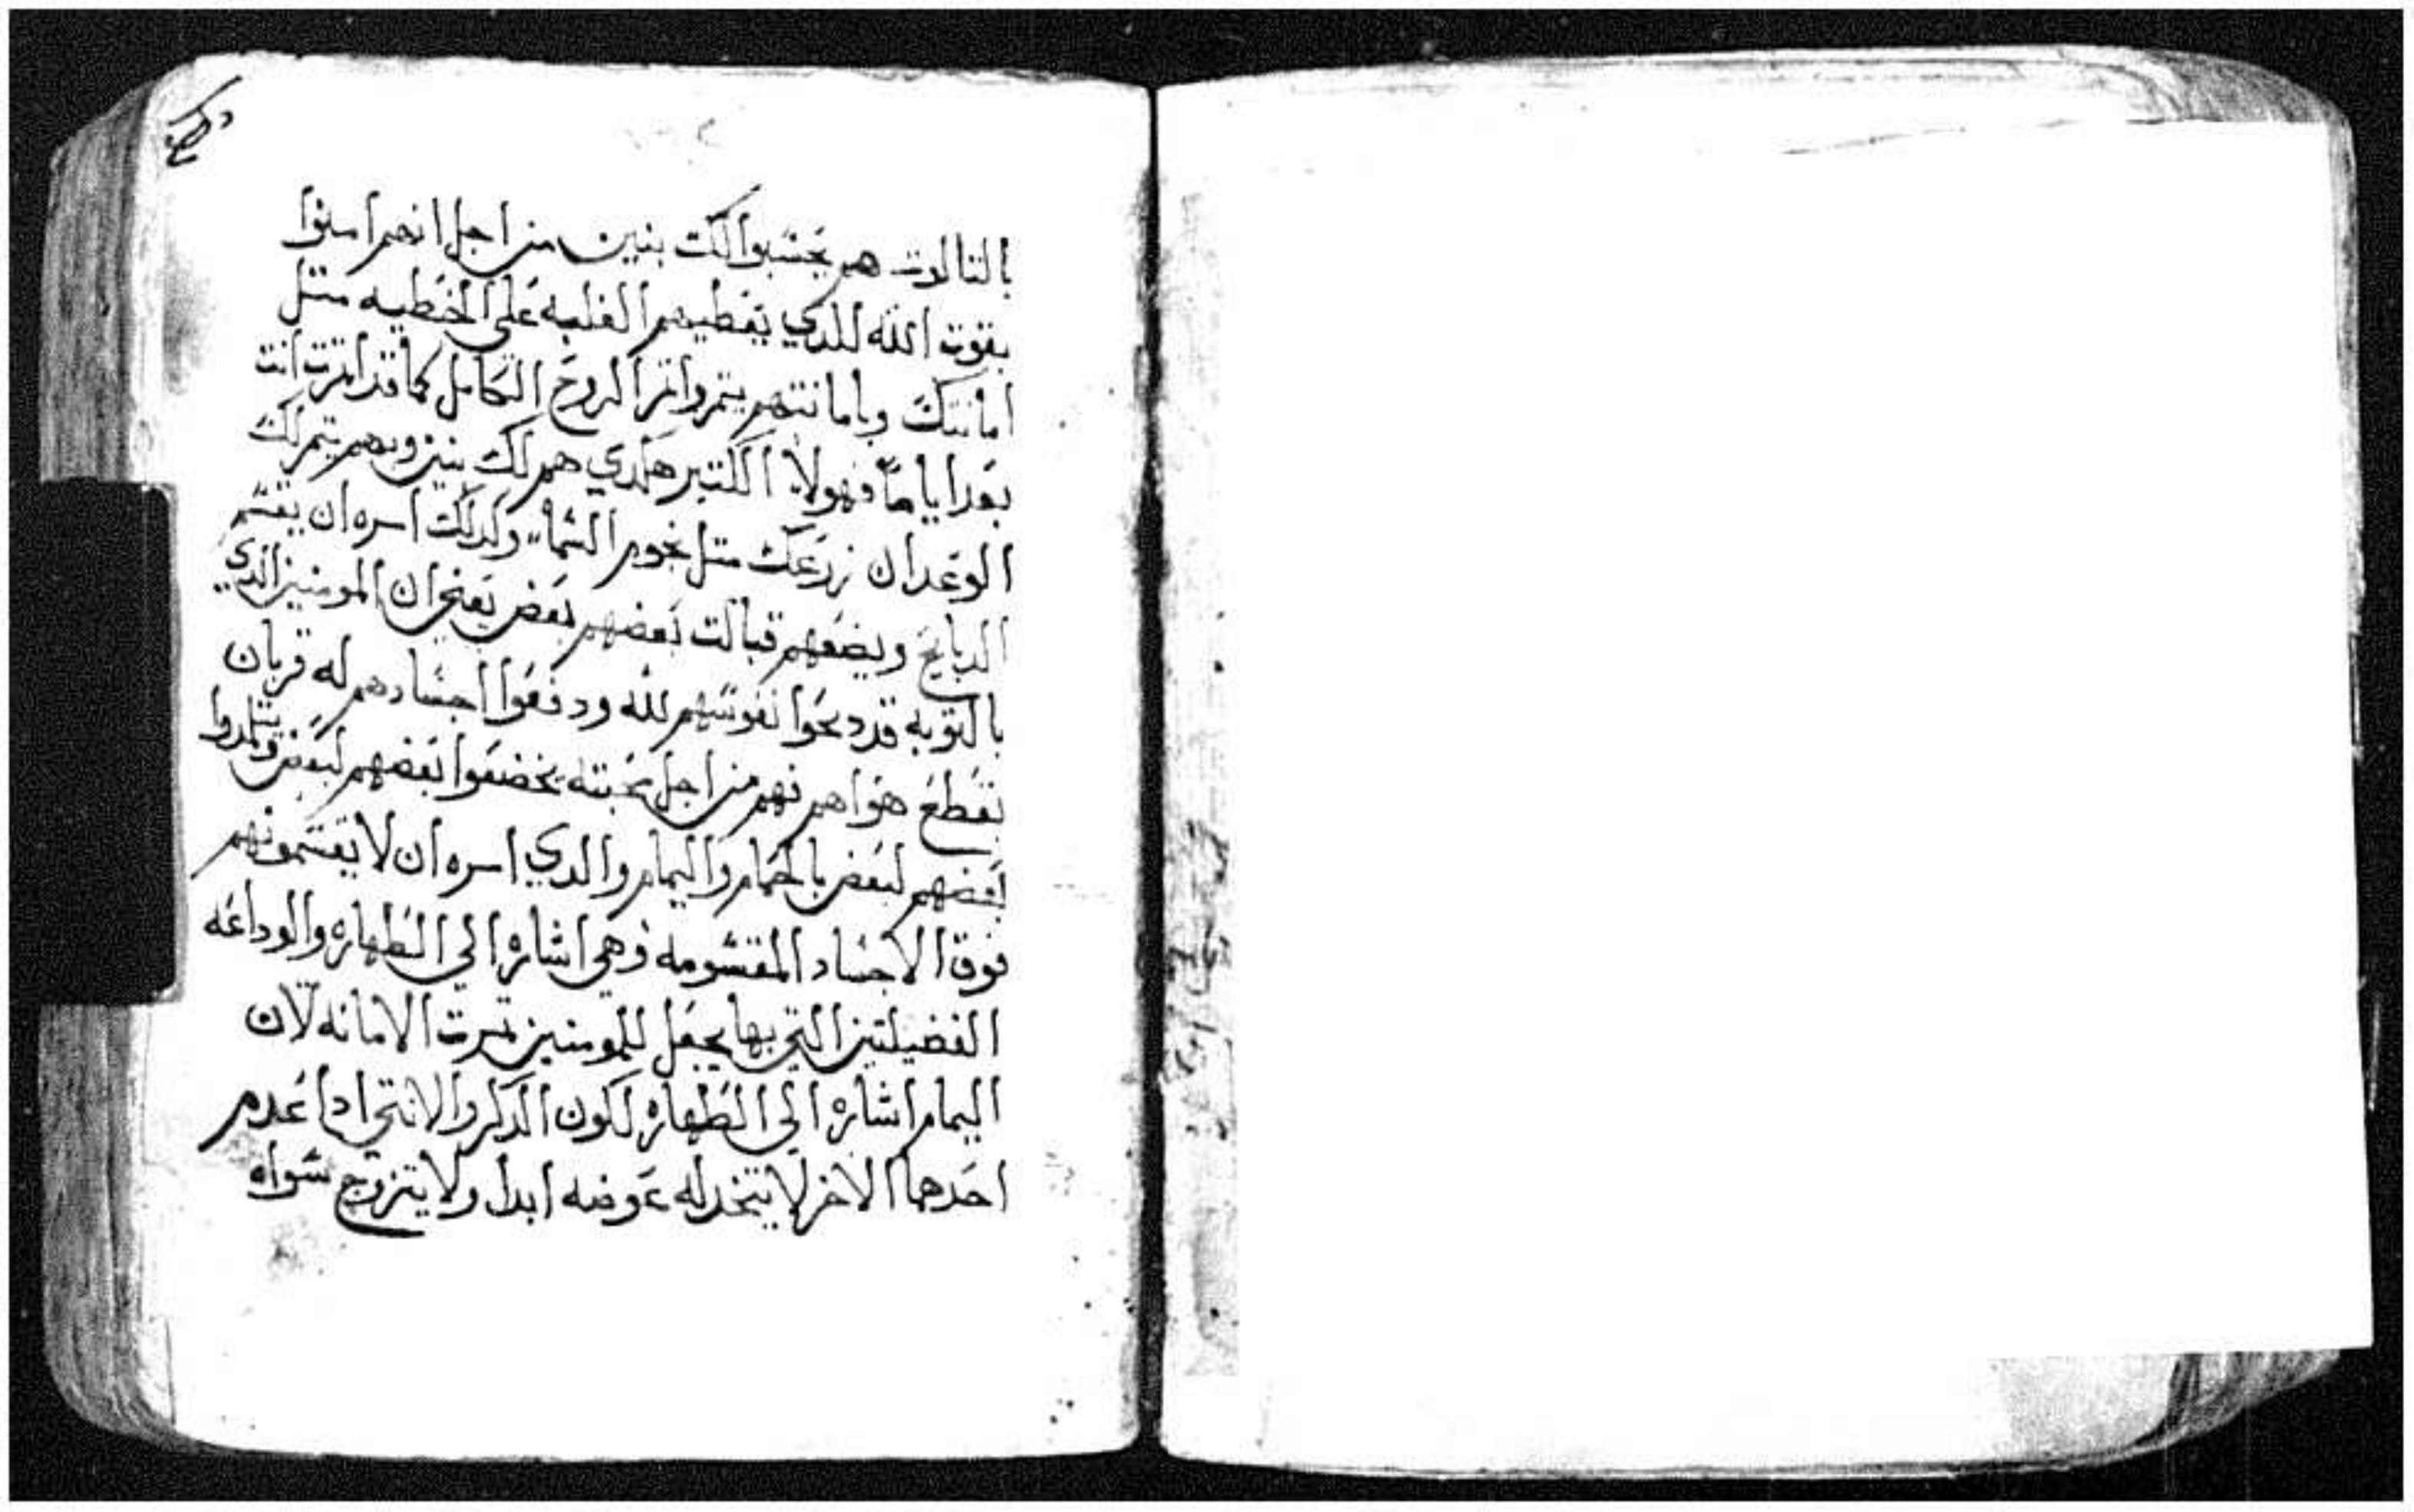 بالتالوت هم يحسبوا لك بنين من اجل انهم امنوا
بقوت الله للدي يعطيهم الغلبه على الخطيه متل
امانتك وبامانتهم يتمروا تمر الروح الكامل كما قد اتمرت انت
بعد اياما فهولاء الكتير هكدي هم لك بنين وبهم يتم لك
الوعد ان زرعك متل نجوم السماء وكدلك امره ان يقسم
الدبايح ويضعهم قبالت بعضهم بعض يعني ان المومنين الدي
بالتوبه قد دبحوا نفوسهم لله ودفعوا اجسادهم له قربان
بقطع هواهم فهم من اجل محبته يخضعوا بعضهم لبعض ويتلمدوا
بعضهم لبعض بالحمام واليمام والدي امره ان لا يقسمونهم
فوق الاجساد المقسومه فهي اشاره الي الطهاره والوداعه
الفضيلتين التي بها يجعل للمومنين تمرت الامانه لان
اليمام اشاره الي الطهاره لكون الدكر والانتي ادا عدم
احدهما الاخر لا يتخد له عوضه ابدا ولا يتزوج سواه